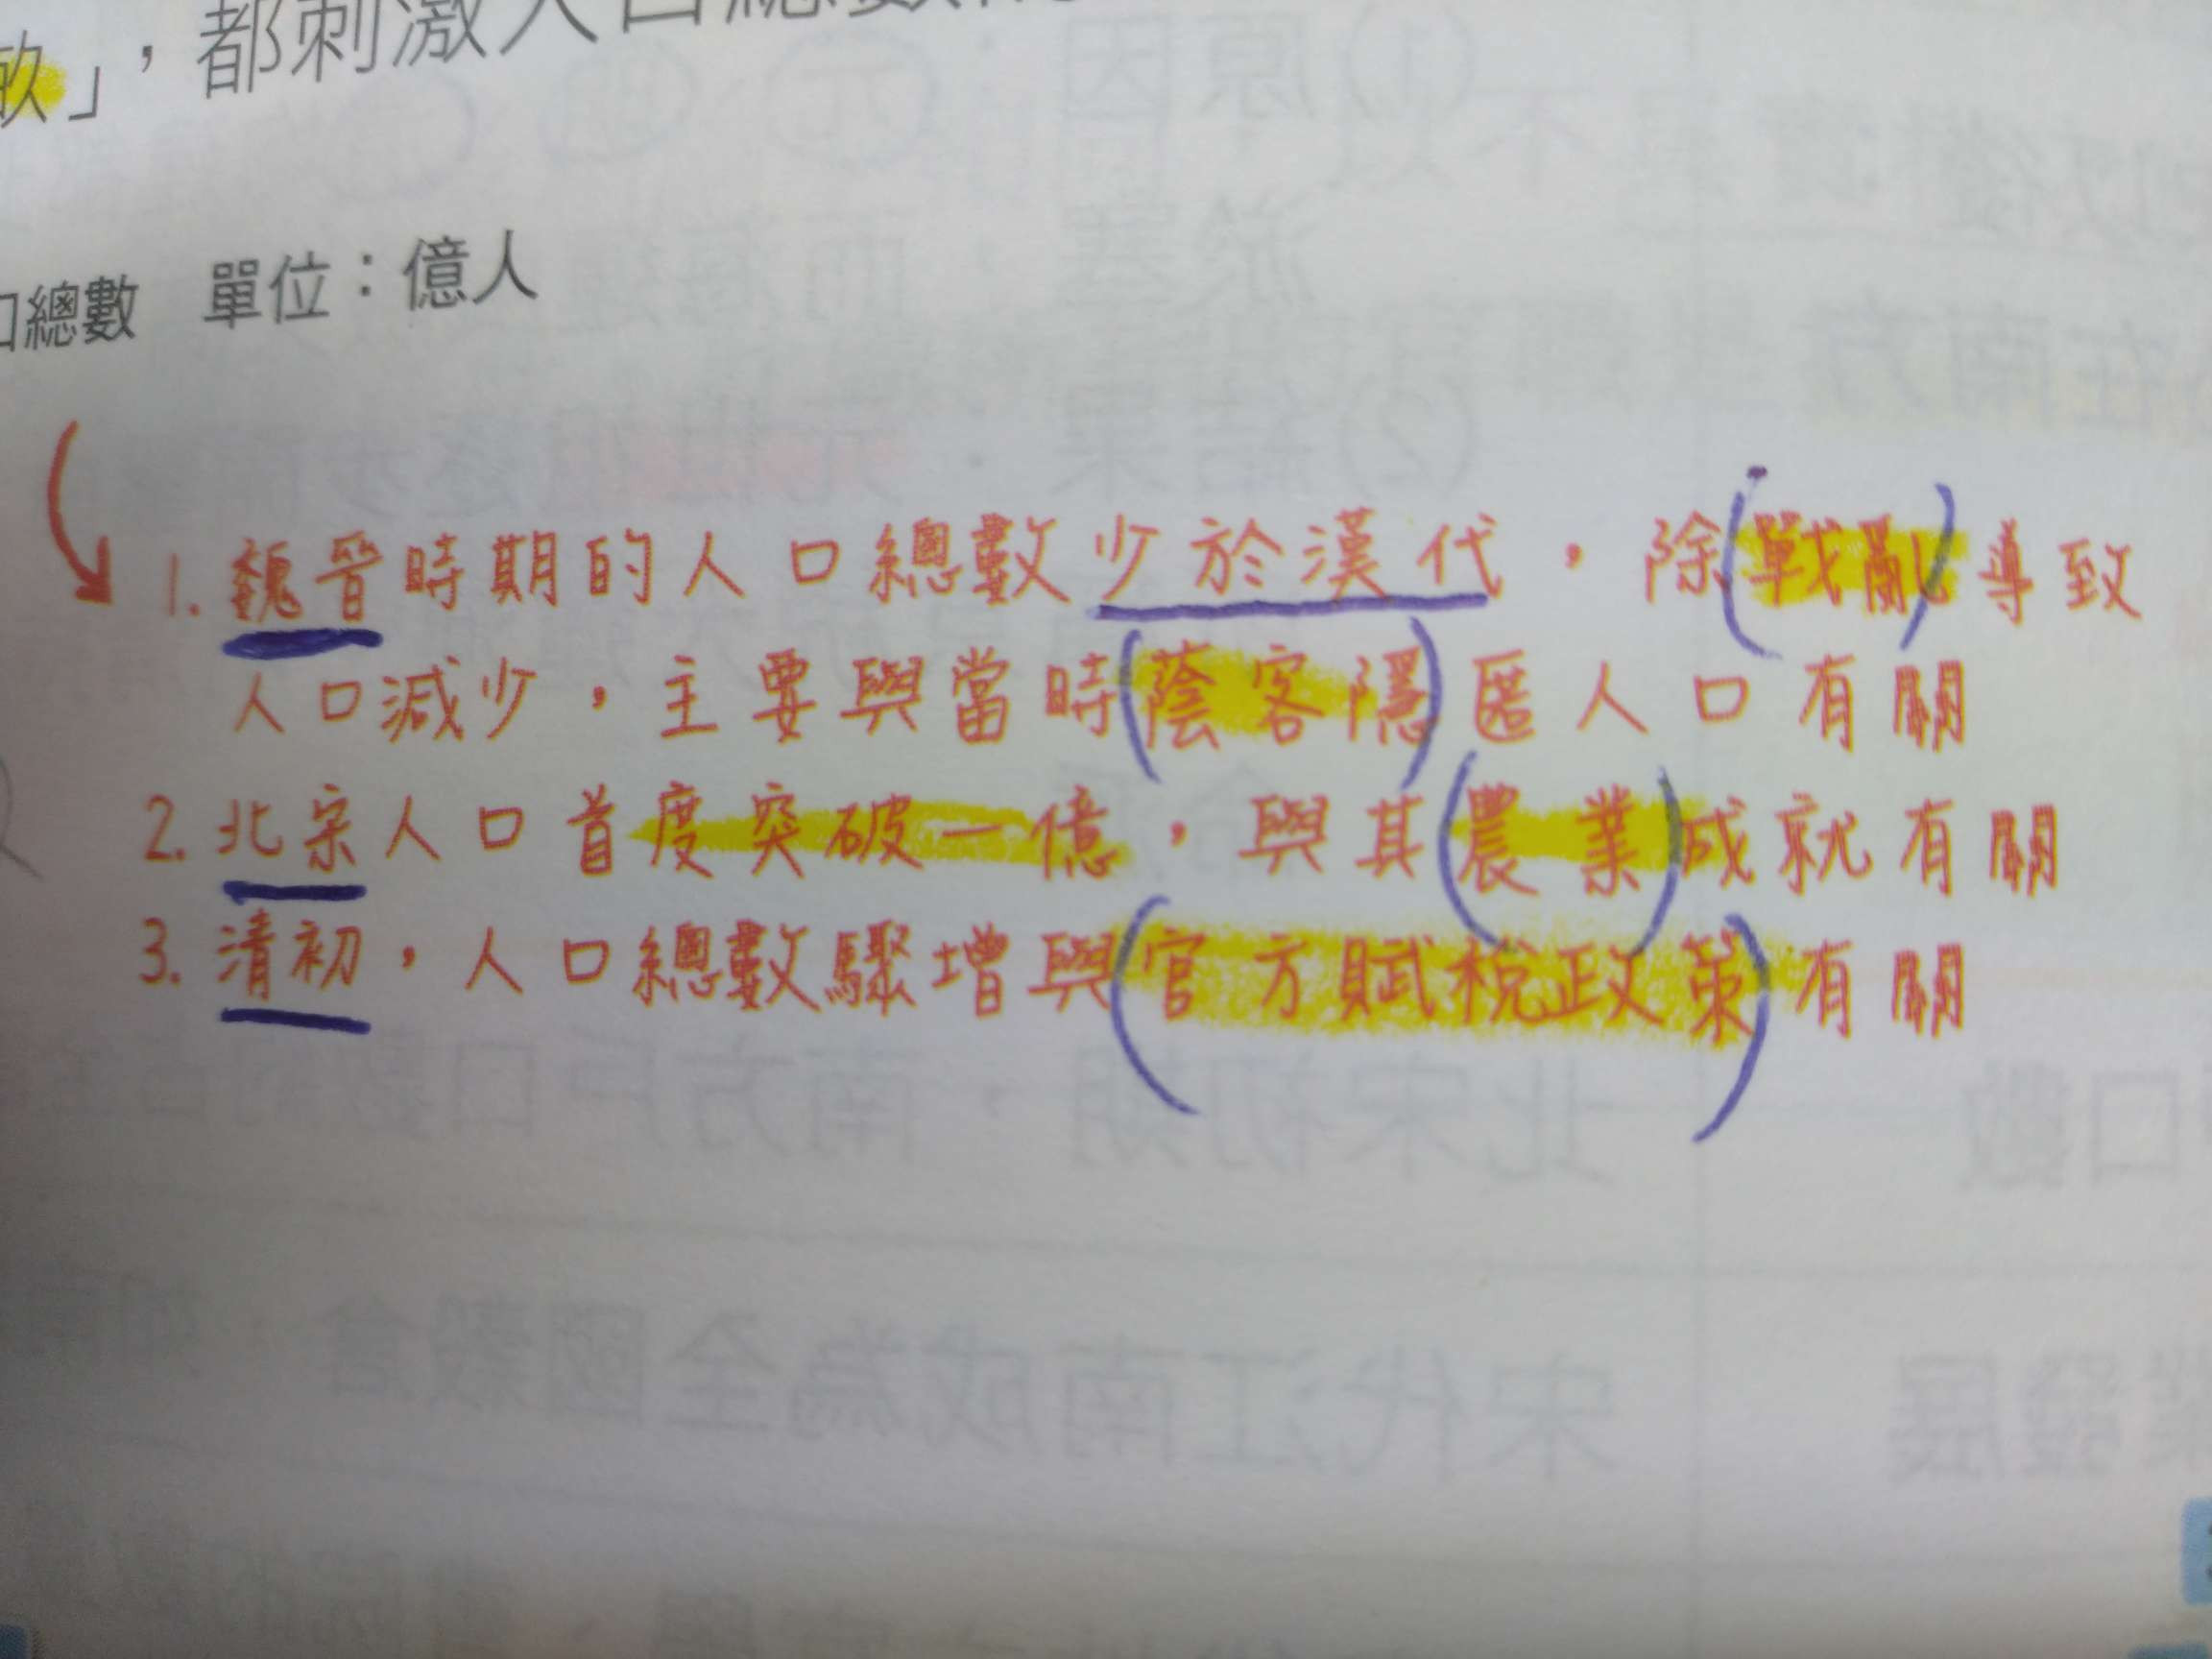 」，都刺激人口總數
口總數 單位：億人
1. 魏晉時期的人口總數少於漢代，除(戰亂)導致
人口減少，主要與當時(蔭客隱)匿人口有關
2. 北宗人口首度突破一億，與其(農業)成就有關
3. 清初，人口總數驟增與(官方賦稅政策)有關